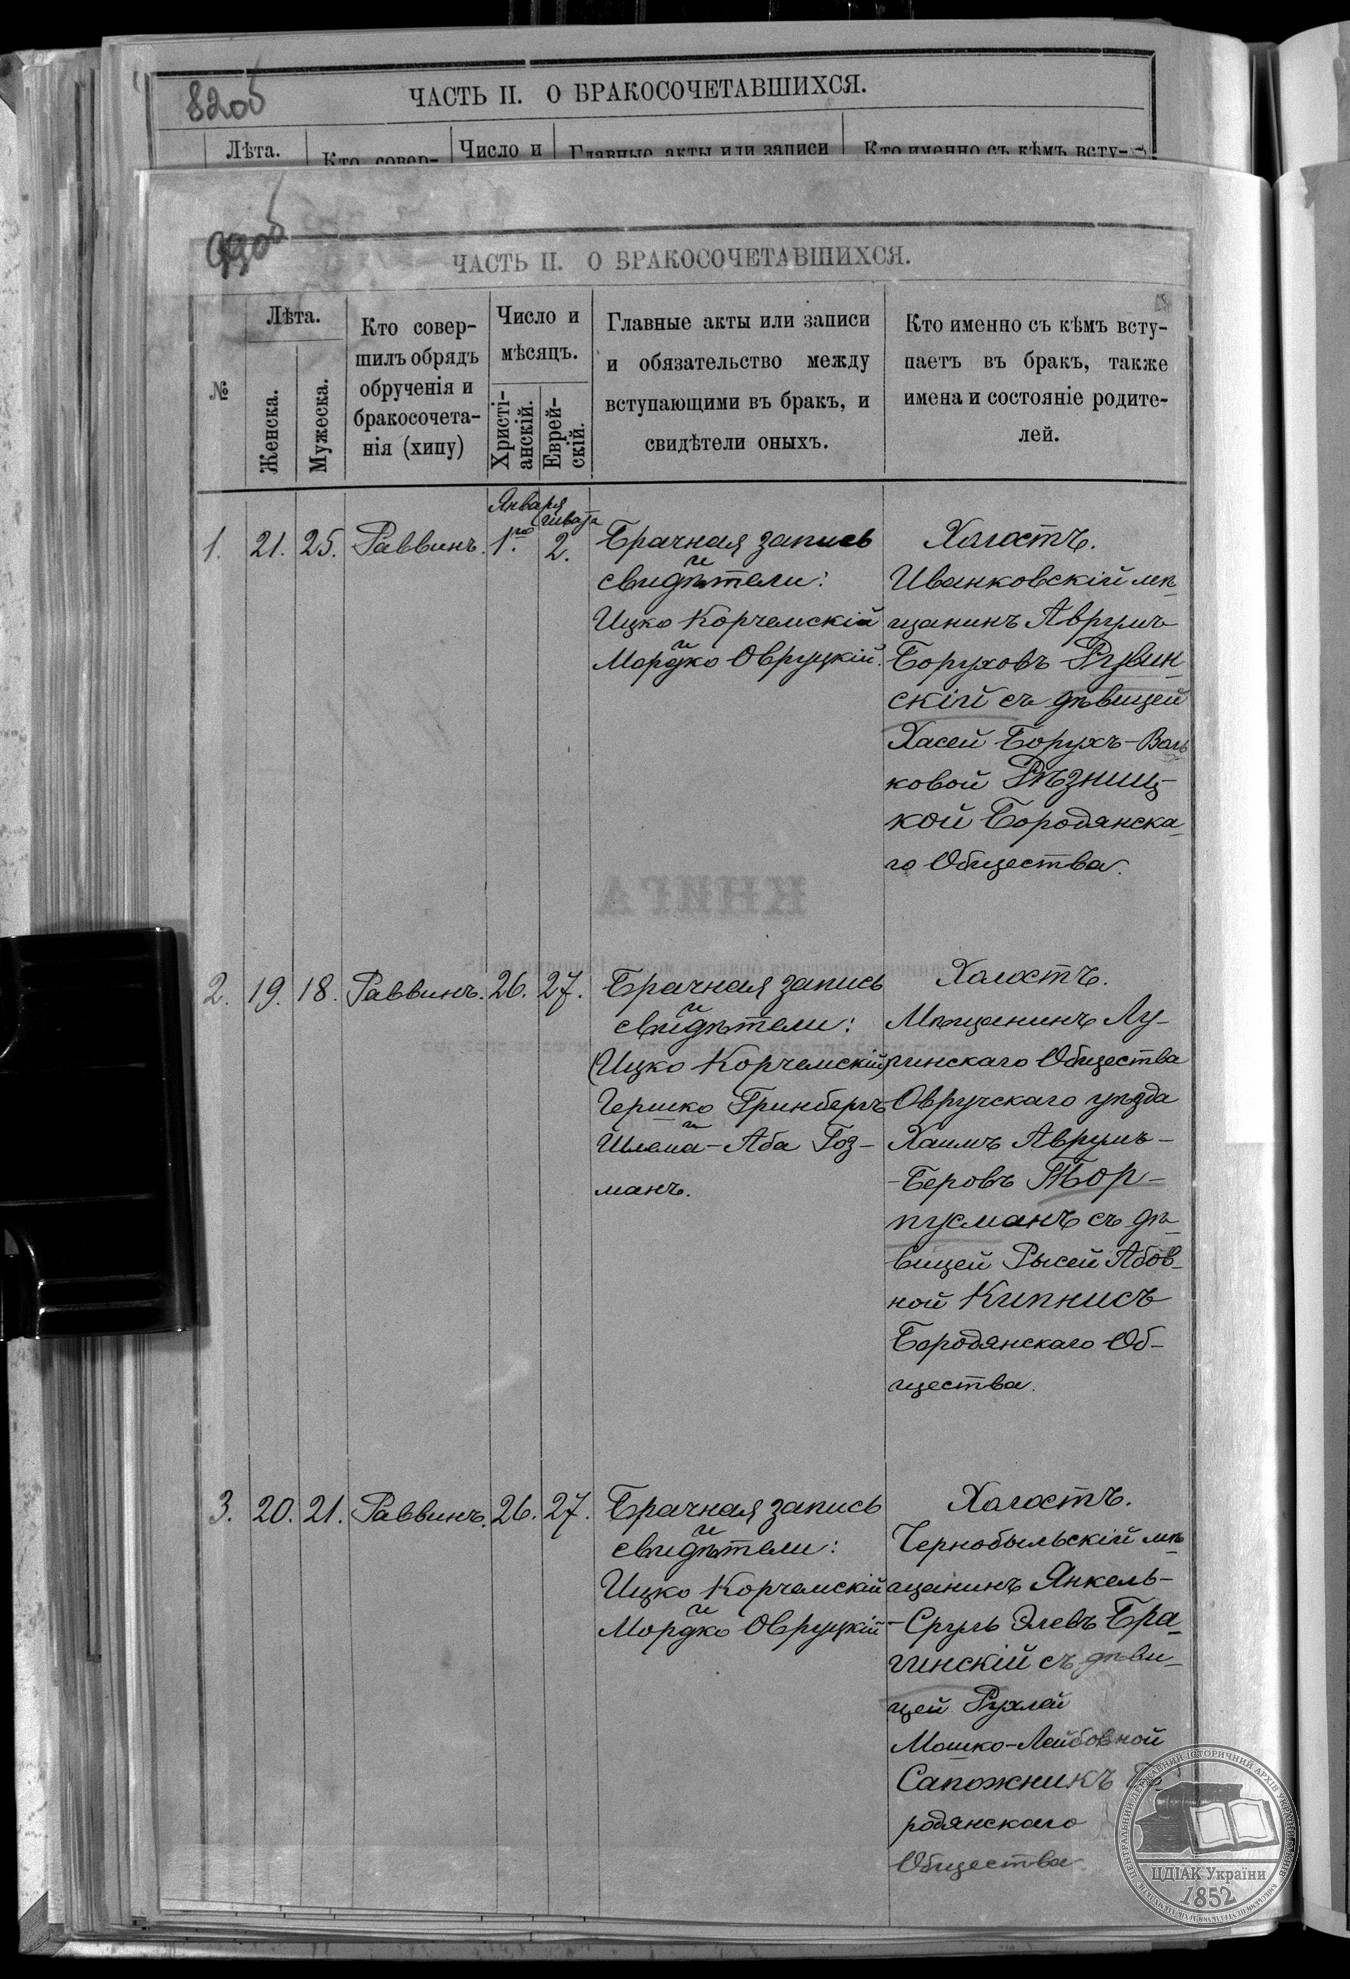 820б
ЧАСТЬ II. О БРАКОСОЧЕТАВШИХСЯ.
Лѣта.
Кто совер-
Число и
Главные акты или записи
Кто именно съ кѣмъ всту-
990б
ЧАСТЬ II. О БРАКОСОЧЕТАВШИХСЯ.
№
Лѣта.
Женска.
Мужеска.
Кто совер-
шилъ обрядъ
обрученія и
бракосочета-
нія (хипу)
Число и
мѣсяцъ.
Христі-
анскій.
Еврей-
скій.
Главные акты или записи
и обязательство между
вступающими въ бракъ, и
свидѣтели оныхъ.
Кто именно съ кѣмъ всту-
паетъ въ бракъ, также
имена и состояніе родите-
лей.
Января
Шеватъ
1. 21. 25. Раввинъ. 1го 2.
Брачная запись
и
свидѣтели:
Ицко Корчемскій
и
Мордко Овруцкій.
Холостъ.
Иванковскій мѣ-
щанинъ Аврумъ
Боруховъ Рувин-
скій съ дѣвицей
Хасей Борухъ-Воль
ковой Рѣзниц-
кой Бородянска-
го Общества.
2. 19. 18. Раввинъ. 26. 27.
Брачная запись
и
свидѣтели:
(Ицко Корчемскій)
Гершко Гринбергъ
и
Шлема-Аба Гоз-
манъ.
Холостъ.
Мѣщанинъ Лу-
гинскаго Общества
Овручскаго уѣзда
Хаимъ Аврумъ-
-Беровъ Тор-
пусманъ съ дѣ-
вицей Рысей Абов-
ной Кипнисъ
Бородянскаго Об-
щества.
3. 20. 21. Раввинъ. 26. 27.
Брачная запись
и
свидѣтели:
Ицко Корчемскій
и
Мордко Овруцкій
Холостъ.
Чернобыльскій мѣ-
щанинъ Янкель-
-Сруль Элевъ Бра-
гинскій съ дѣви-
цей Рухлей
Мошко-Лейбовной
Сапожникъ Бо-
родянскаго
Общества.
КНИГА
ЦЕНТРАЛЬНИЙ ДЕРЖАВНИЙ ІСТОРИЧНИЙ АРХІВ УКРАЇНИ
ЦДІАК України
1852